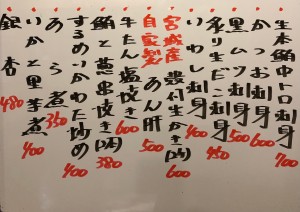 生本鮪中トロ刺身 700
かつお刺身 600
黒ムツ刺身 500
炙り生だこ刺身 450
いわし刺身 400
宮城産殻付生かき(1ヶ) 600
自家製あん肝 500
牛たん塩焼き 600
鮪と葱串焼き(1本) 380
するめいかわた炒め 400
あら煮 350
いかと里芋煮 400
銀杏 480